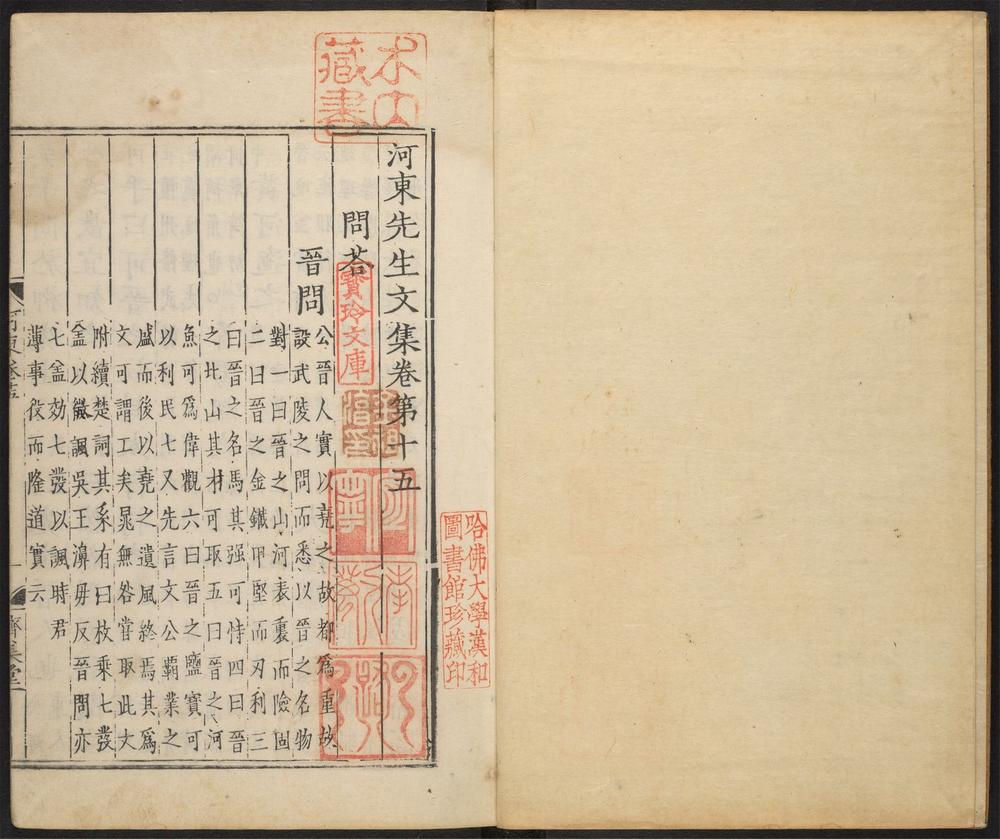 河東先生文集卷第十五
問荅
晉問
公晉人實以堯之故都爲重故
設武陵之問而悉以晉之名物
對一曰晉之山河表裏而險固
二曰晉之金鐵甲堅而刃利三
曰晉之名馬其强可恃四曰晉
之北山其材可取五曰晉之河
魚可爲偉觀六曰晉之鹽寶可
以利民七又先言文公霸業之
盛而後以堯之遺風終焉其爲
文可謂工矣晁無咎嘗取此文
附續楚詞其系有曰枚乘七發
盖以微諷吳王濞毋反晉問亦
七盖効七發以諷時君
薄事役而隆道實云
河東卷十五
一
濟美堂
木石
藏書
寶玲文庫
哈佛大學漢和
圖書館珍藏印